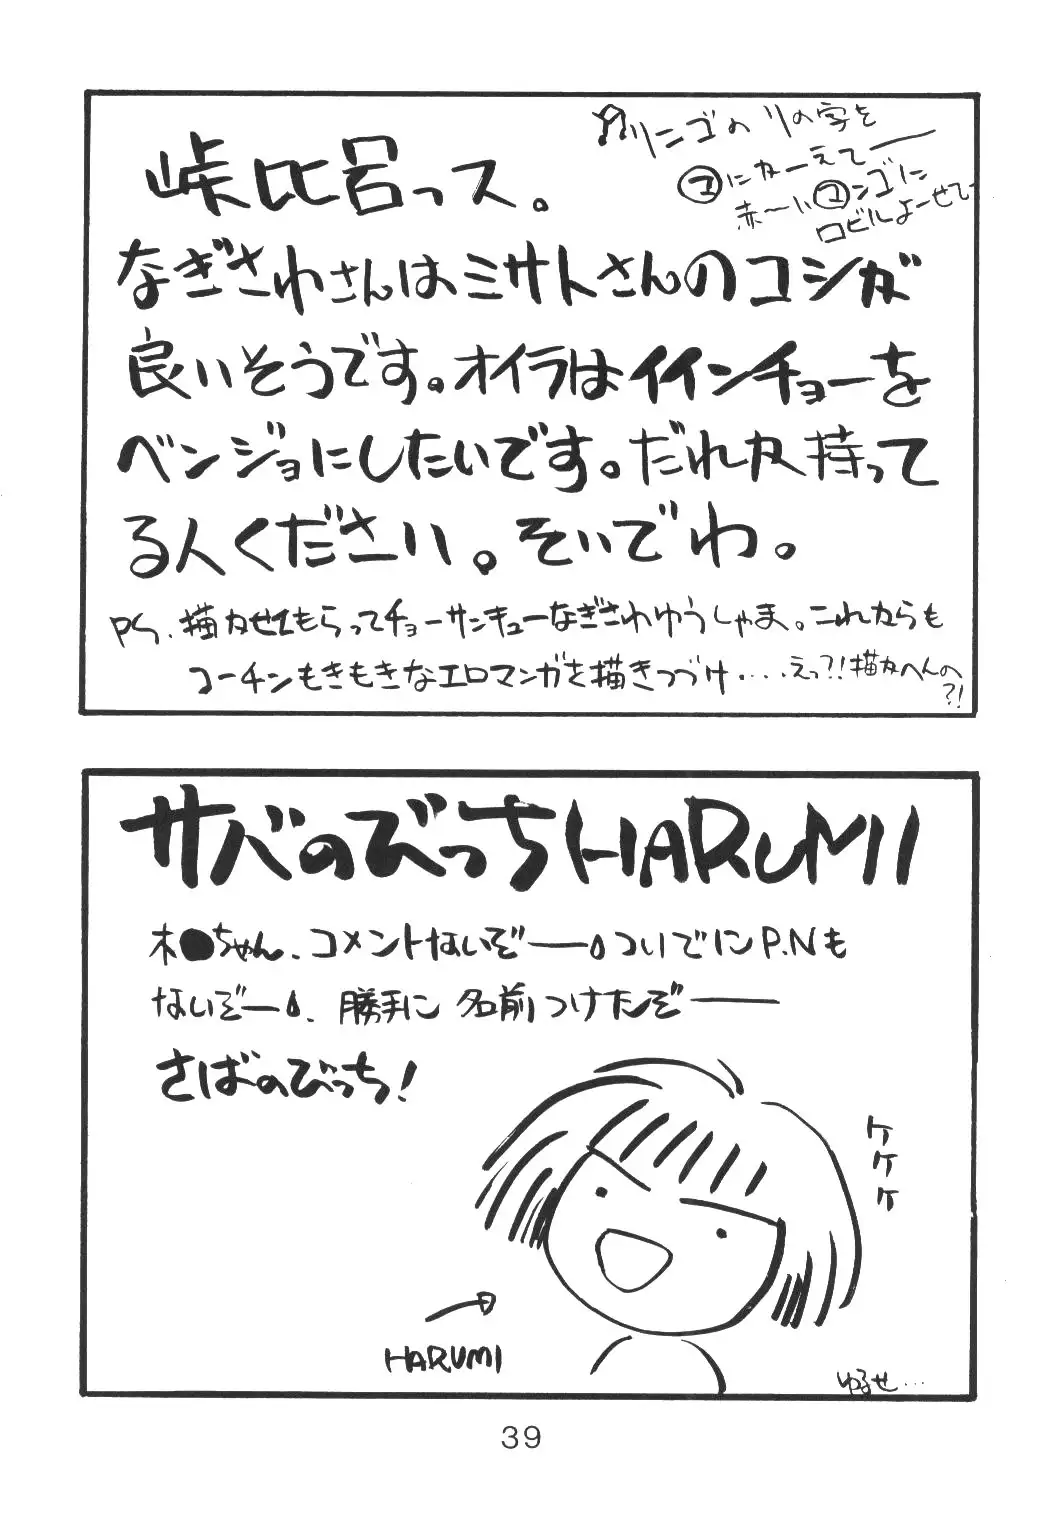 峠比呂っス。
なぎさわさんはミサトさんのコシが
良いそうです。オイラはイインチョーを
ベンジョにしたいです。だれか持って
る人ください。そいでわ。
リンゴのリの字を
マにかーえてー
赤〜いマンゴに
ロビルよーせてー
PS、描かせてもらってチョーサンキューなぎさわゆうしゃま。これからも
コーチンもきもきなエロマンガを描きつづけ・・・・えっ?!描かへんの
?!
サバのびっちHARUMI
木●ちゃん、コメントないぞーー。ついでにP.Nも
ないぞー。、勝手に名前つけたぞーー
さばのびっち!
ケケケ
HARUMI
ゆるせ…
39